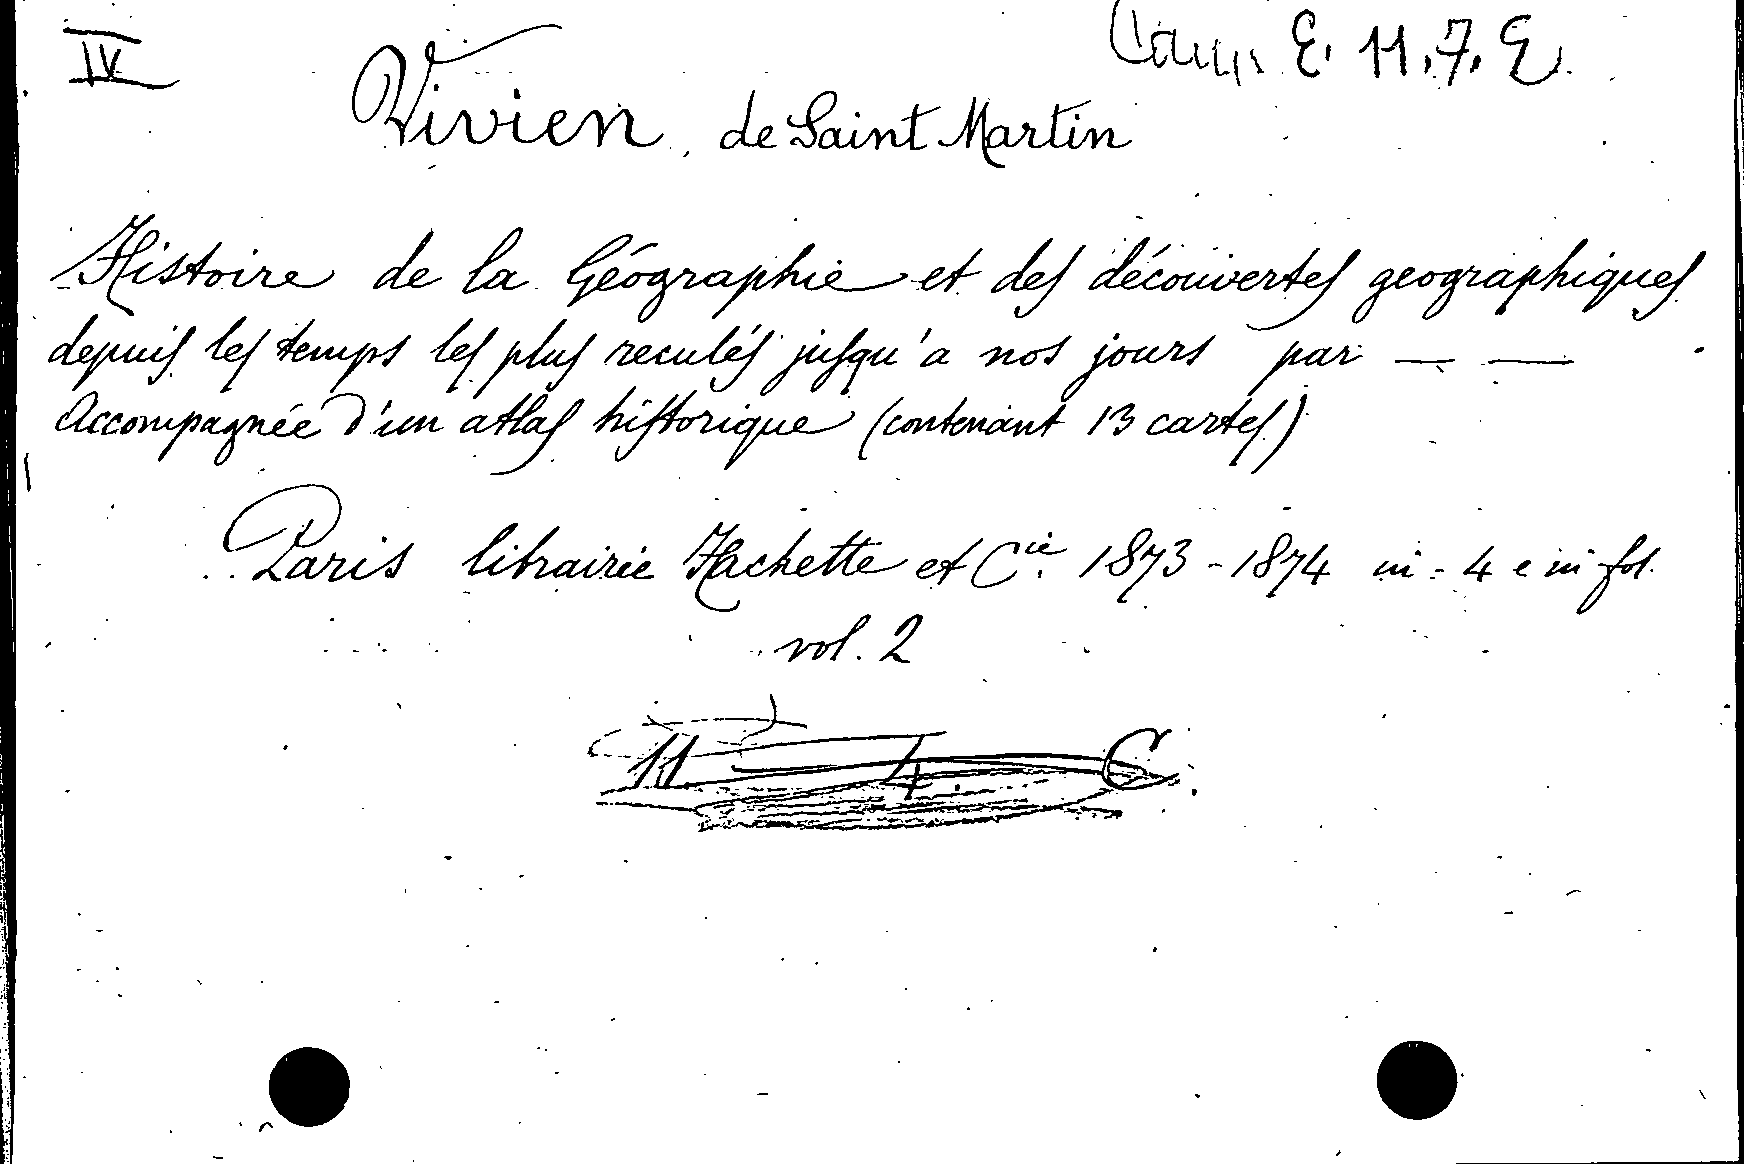 IV
Camp. E. 11.7.E.
Vivien, de Saint Martin
Histoire de la Géographie et des découvertes geographiques
depuis les temps les plus reculés jusqu'a nos jours par — —
Accompagnée d'un atlas historique (contenant 13 cartes)
Paris librairie Hachette et Cie. 1873-1874 in-4 e in fol.
vol. 2
11 4. C